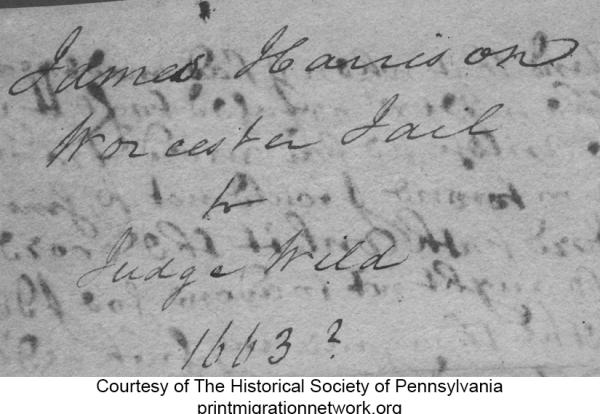 James Harrison
Worcester Jail
to
Judge Wild
1663?
Courtesy of The Historical Society of Pennsylvania
printmigrationnetwork.org